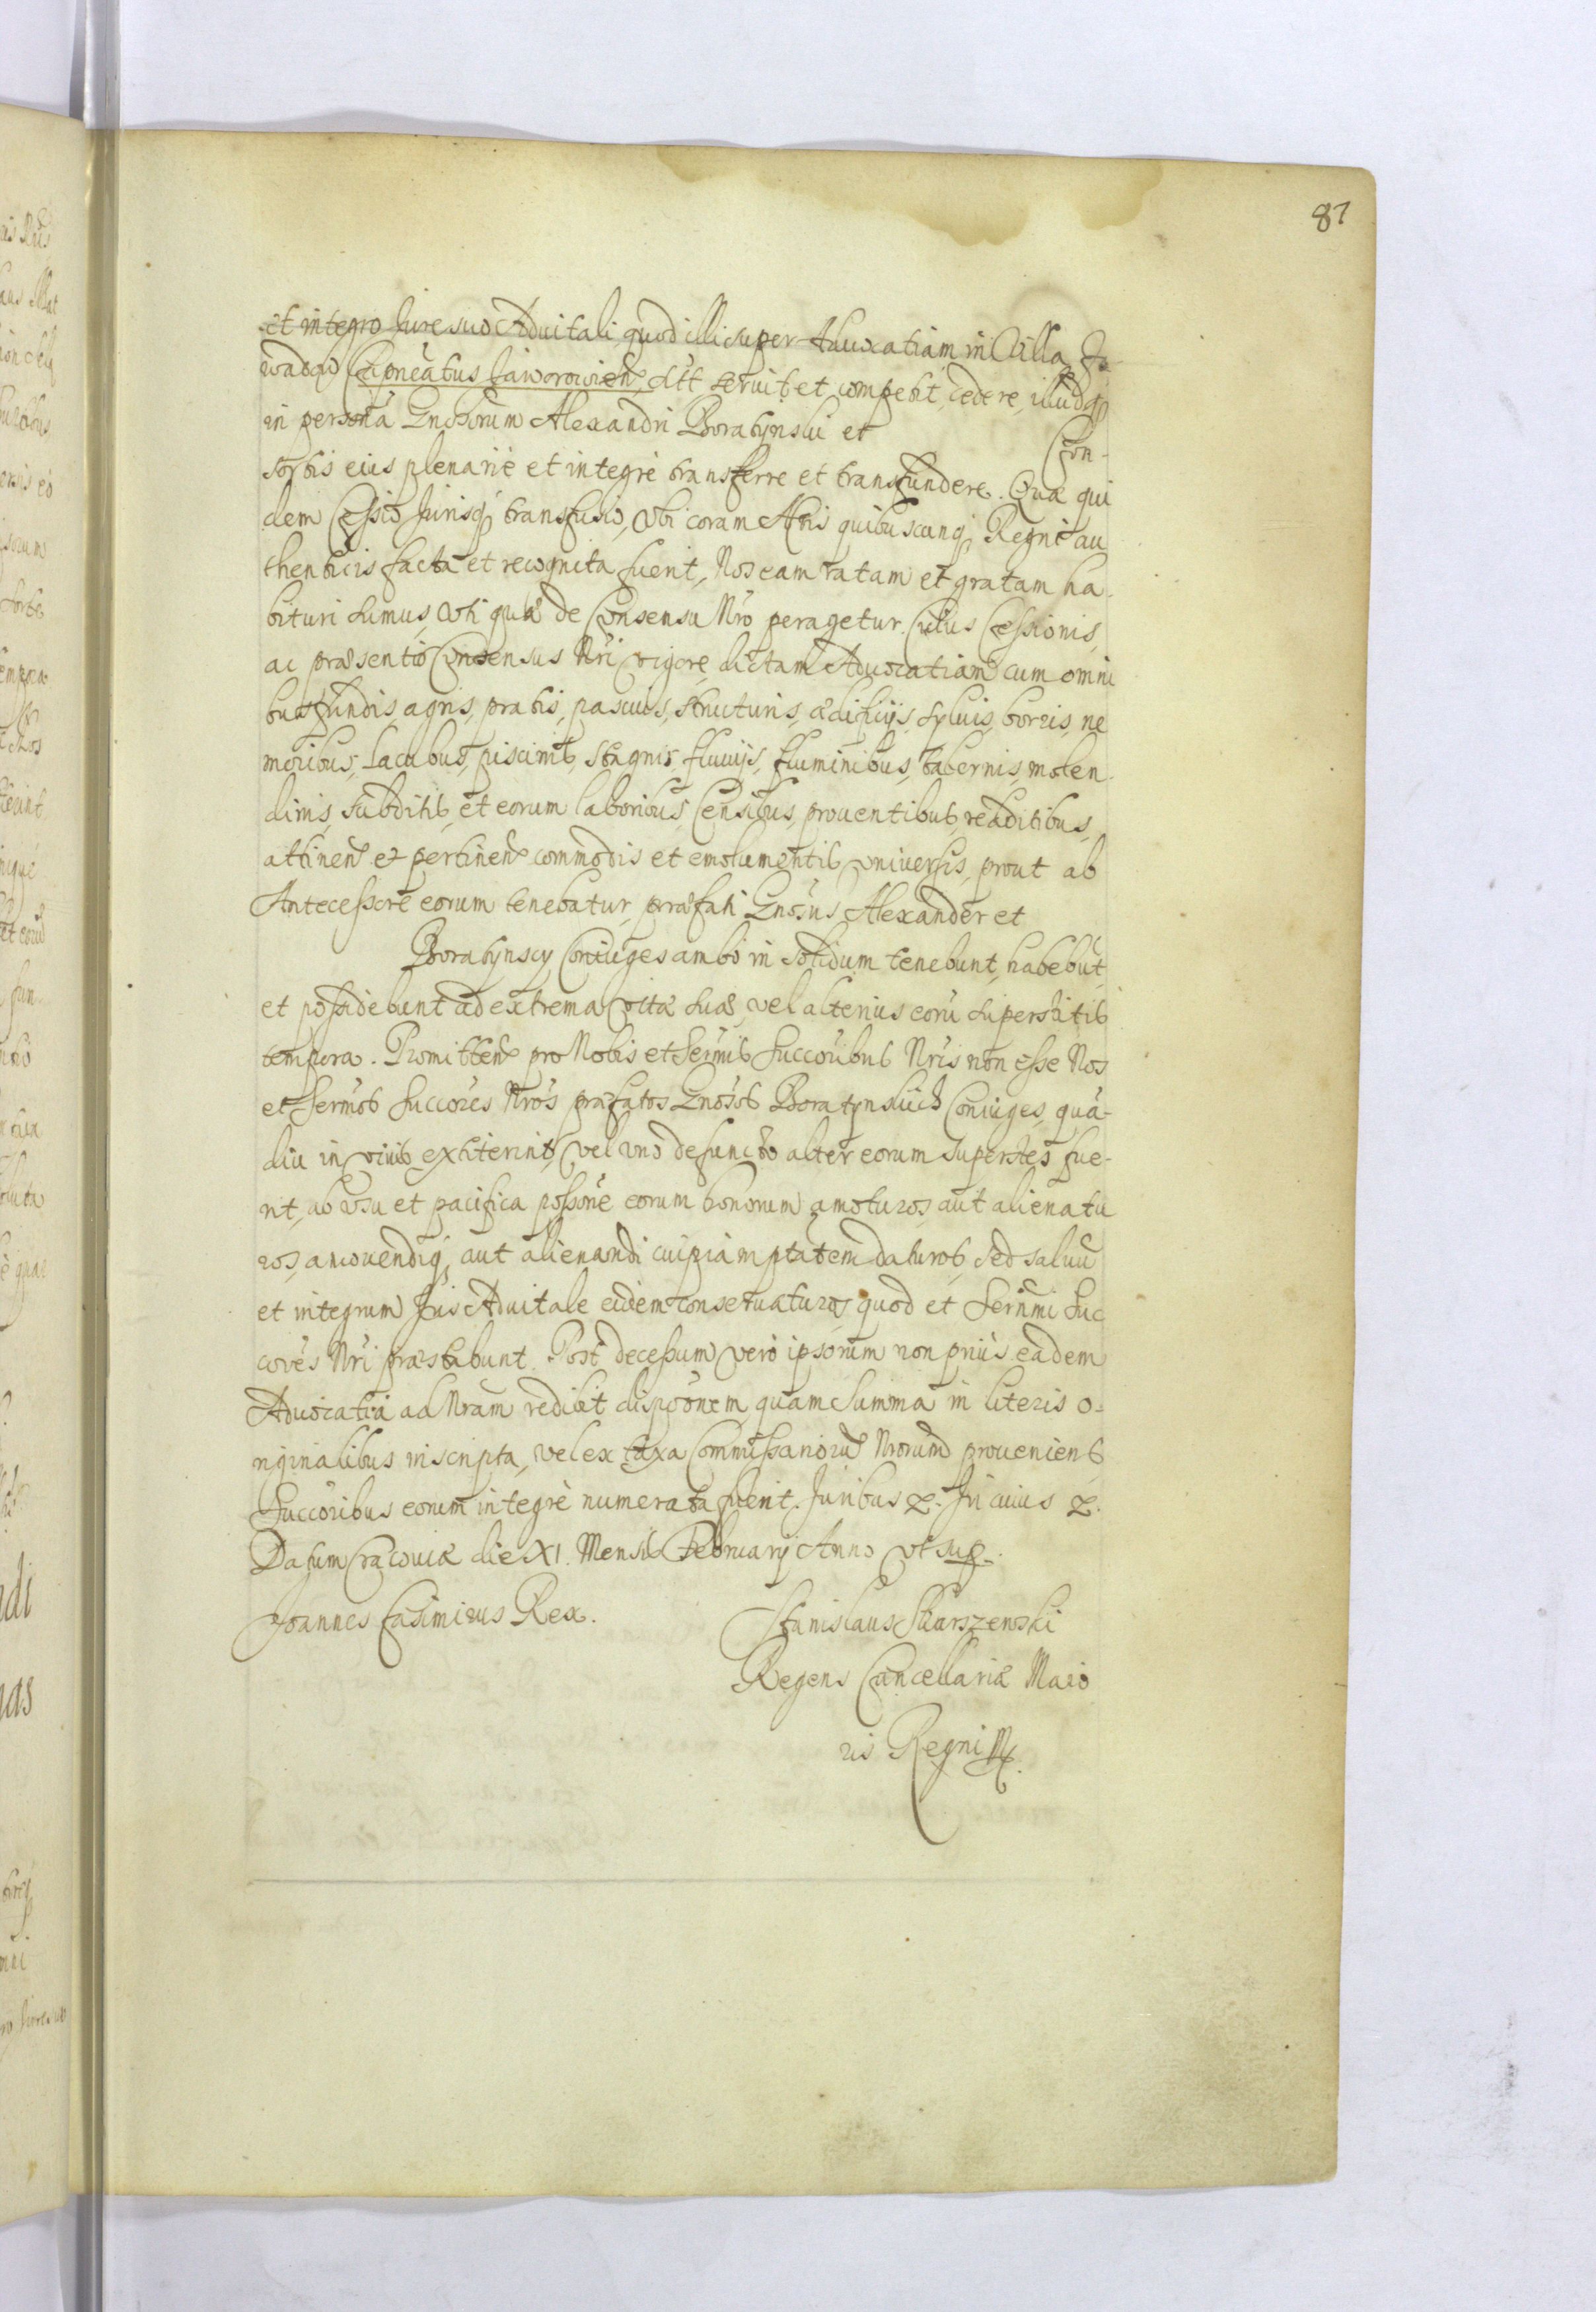 87
et integro Jure suo Advitali, quod illi super Advocatiam in Villa Za-
wadow Capneatus Jaworowien̄ ditt servit et competit, cedere, illudq́
in persona Gnosorum Alexandri Boratynski et Con-
sortis eius plenarie et integre transferre et transfundere. Quæ qui
dem Cessio Jurisq́ transfusio, vbi coram Actis quibuscunq́ Regni au
thenticis facta et recognita fuerit, Nos eam ratam et gratam ha-
bituri sumus, vti quæ de Consensu Nrō peragetur. Cuius Cessionis,
ac præsentis Consensus Nrī vigore, dictam Advocatiam cum omni
bus fundis, agris, pratis, pascuis, structuris, ædificijs, syluis, borris, ne
moribus, lacubus, piscinis, stagnis, fluuijs, fluminibus, tabernis, molen-
dinis, subditis, et eorum laboribus, Censibus, prouentibus, redditibus,
attinen̄ et pertinen̄ commodis et emolumentis vniuersis, prout ab
Antecessore eorum tenebatur, præfati Gnosus Alexander et
Boratynscy Coniuges ambo in solidum tenebunt, habebūt,
et possidebunt ad extrema vitæ suæ, vel alterius eorū superstitis
tempora. Promitten̄ pro Nobis et Sermis Succoribus Nrīs non esse Nos
et Sermos Succores Nrōs præfatos Gnosos Boratynskich Coniuges, quā-
diu in viuis extiterint, vel vno defuncto alter eorum superstes fue-
rit, ab vsu et pacifica possone eorum bonorum amoturos, aut alienatu
ros, amouendiq́, aut alienandi cuipiam ptatem daturos, sed saluū
et integrum Jus Advitale eisdem conseruaturos, quod et Sernmi Suc
cores Nrī præstabunt. Post decessum vero ipsorum non prius eadem
Advocatia ad Nram redibit dispoonem, quam Summa in literis o-
riginalibus inscripta, vel ex taxa Commissariorū Nrorum proueniens,
Succoribus eorum integre numerata fuerit. Juribus &. In cuius &.
Datum Cracouiæ die XI. Mensis February Anno vt sup.
Joannes Casimirus Rex.
Stanislaus Skarszewski
Regens Cancellariæ Maio
ris Regni